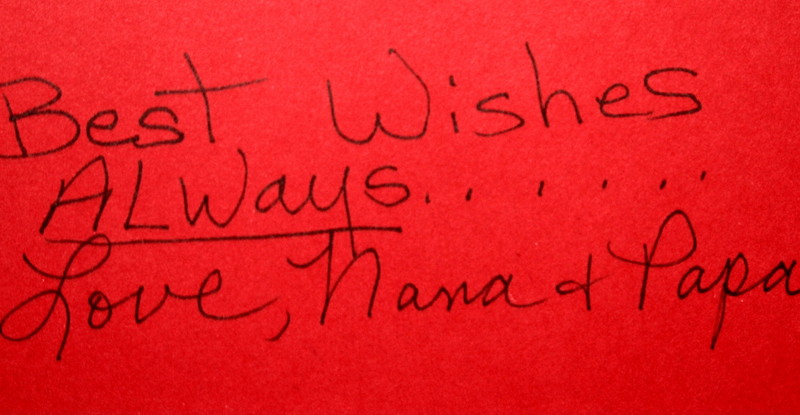 Best Wishes
ALWays. . . . . .
Love, Nana & Papa